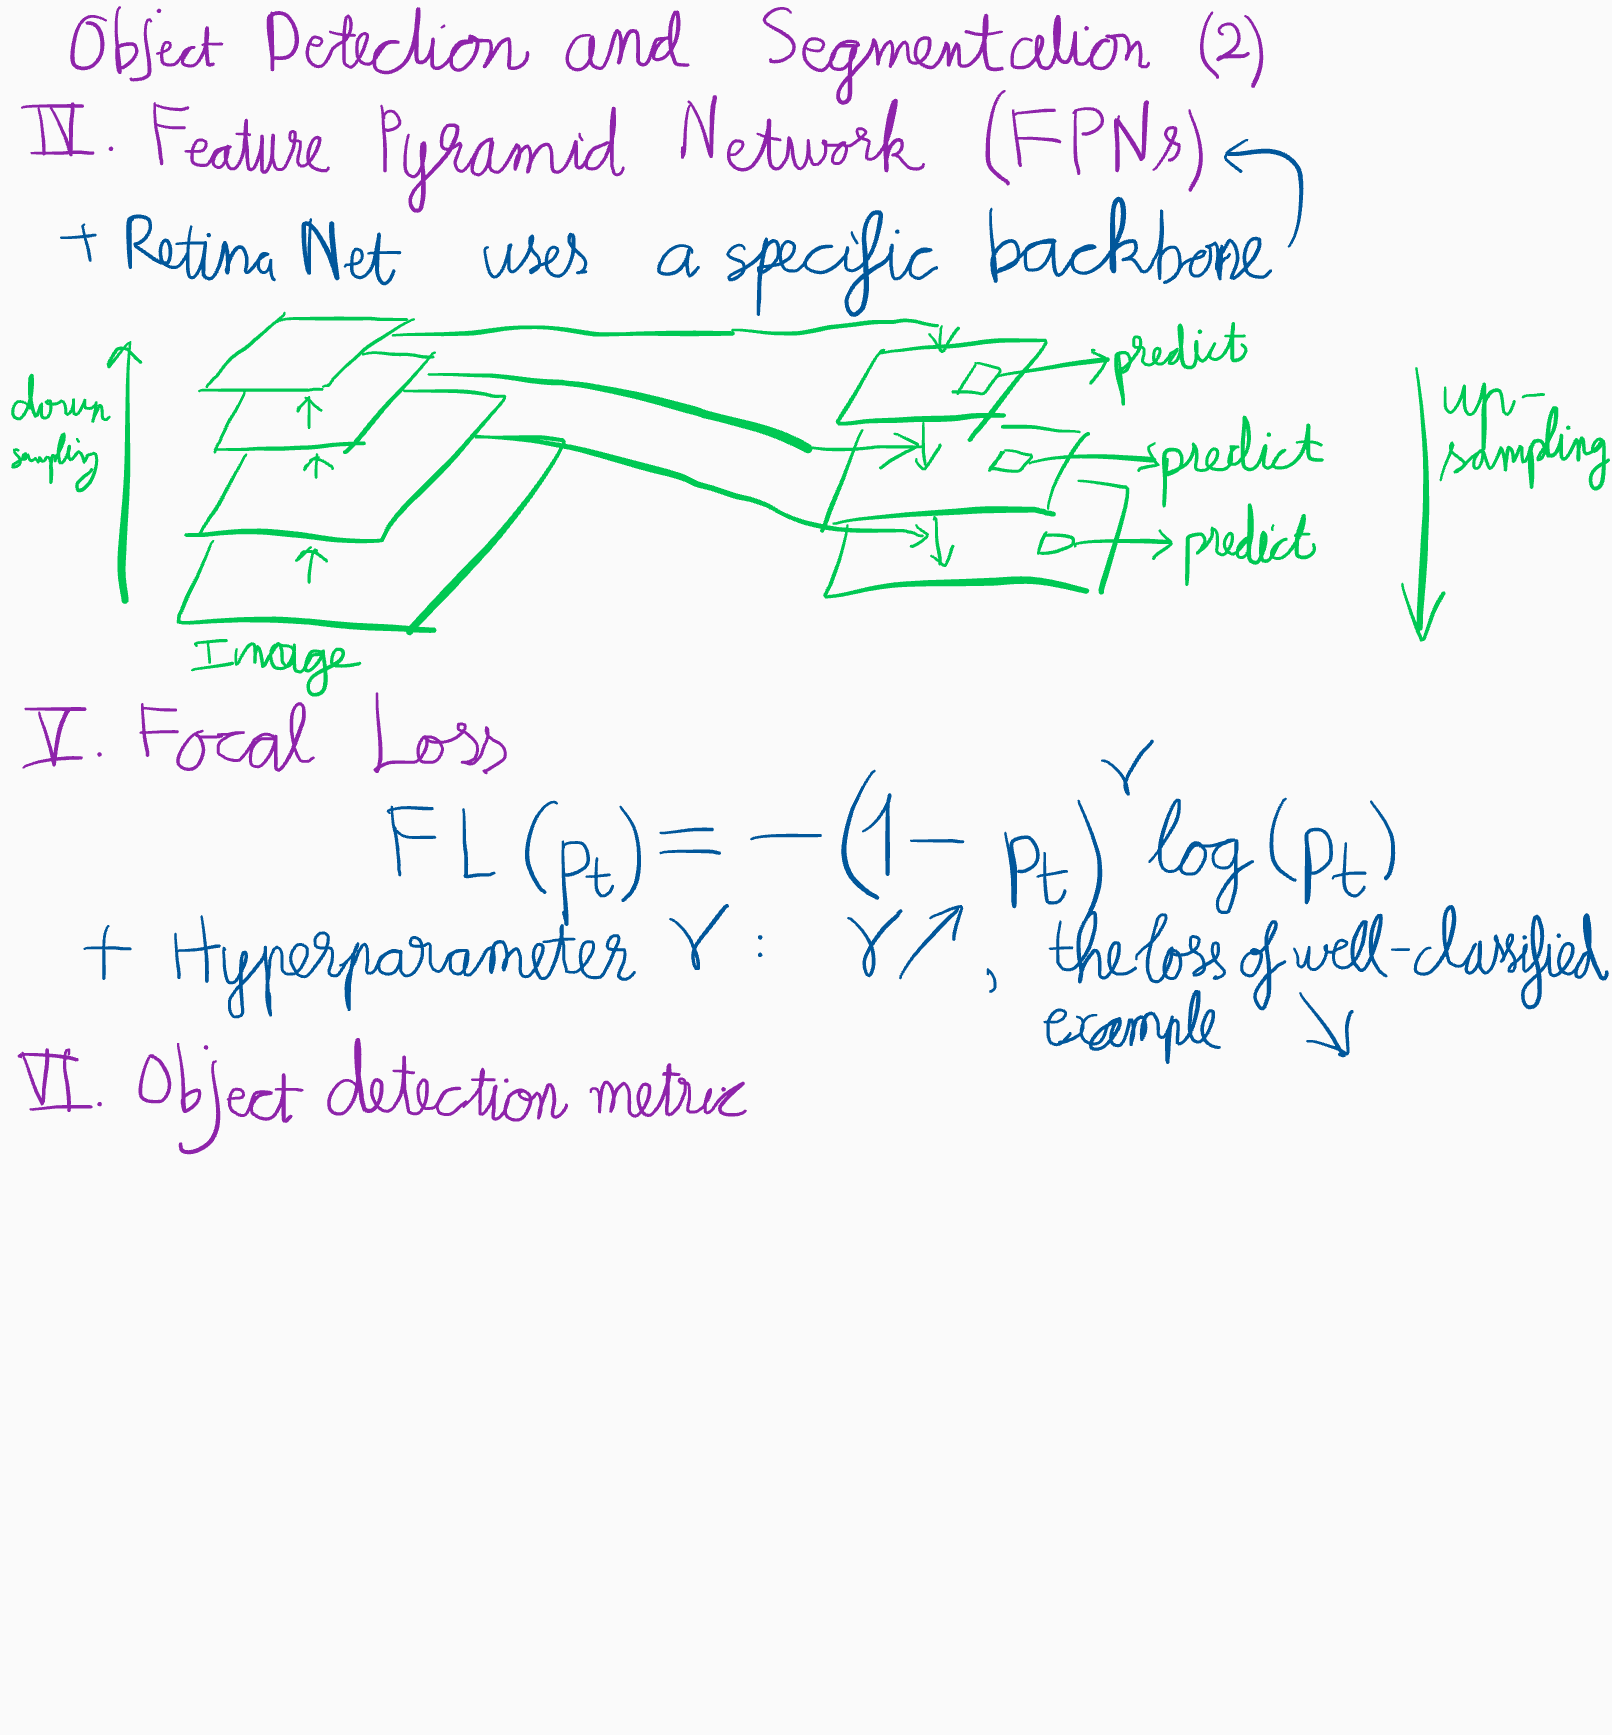 Object Detection and Segmentation (2)
IV. Feature Pyramid Network (FPNs)
+ Retina Net uses a specific backbone
down
sampling
predict
predict
predict
up-
sampling
Image
V. Focal Loss
FL(pt) = -(1 - pt)^γ log(pt)
+ Hyperparameter γ : γ ↗, the loss of well-classified
example ↘
VI. Object detection metric